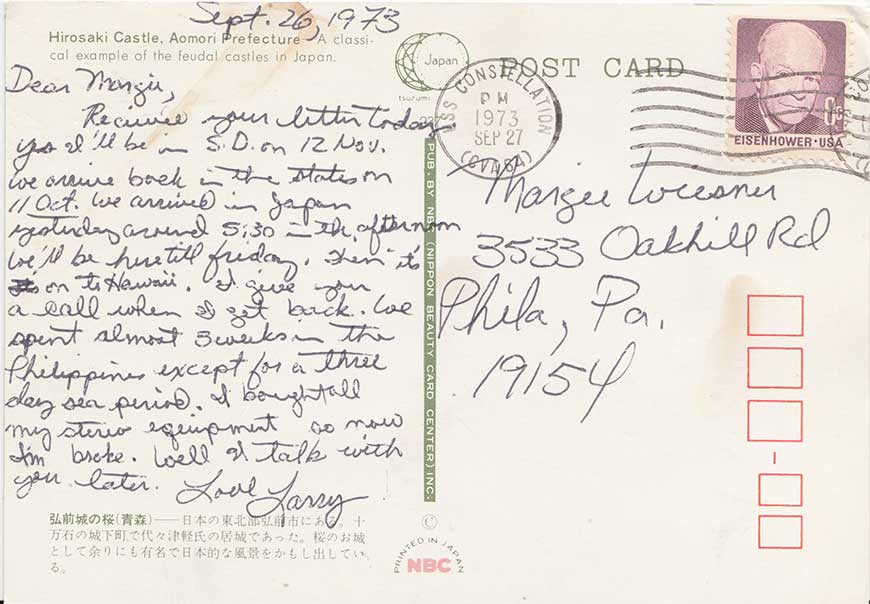 Sept. 26, 1973
Hirosaki Castle, Aomori Prefecture—A classi-
cal example of the feudal castles in Japan.
Dear Margie,
Receive your letter today
yes I'll be in S.D. on 12 Nov.
we arrive back in the states on
11 Oct. We arrived in Japan
yesterday around 5:30 in the afternoon
We'll be here till friday. Then it's
on to Hawaii. I give you
a call when I get back. We
spent almost 3 weeks in the
Philippines except for a three
day sea period. I bought all
my stereo equipment so now
I'm broke. Well I talk with
you later. Love Larry
弘前城の桜(青森)——日本の東北部弘前市にある。十
万石の城下町で代々津軽氏の居城であった。桜のお城
として余りにも有名で日本的な風景をかもし出してい
る。
Japan
tsurumi
PUB. BY NBC (NIPPON BEAUTY CARD CENTER) INC.
©
PRINTED IN JAPAN
NBC
POST CARD
USS CONSTELLATION
PM
1973
SEP 27
(CVA64)
EISENHOWER·USA
Margie Wiesner
3533 Oakhill Rd
Phila, Pa.
19154